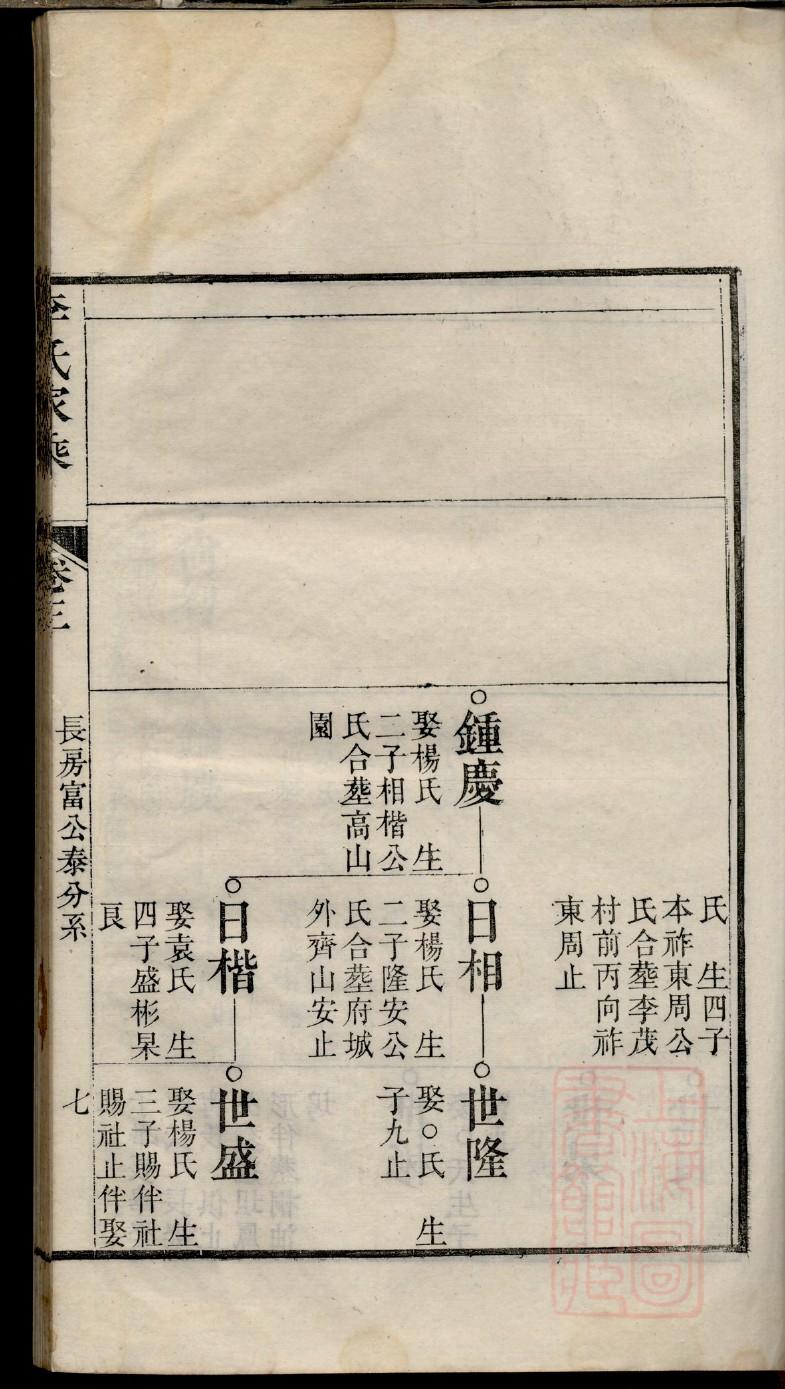 氏　生四子
本祚東周公
氏合塟李茂
村前丙向祚
東周止
○鍾慶
娶楊氏　生
二子相楷公
氏合塟高山
園
○日相
娶楊氏　生
二子隆安公
氏合塟府城
外齊山安止
○世隆
娶○氏　生
子九止
○日楷
娶袁氏　生
四子盛彬杲
良
○世盛
娶楊氏　生
三子賜伴社
賜社止伴娶
李氏家乘
卷三
長房富公泰分系
七